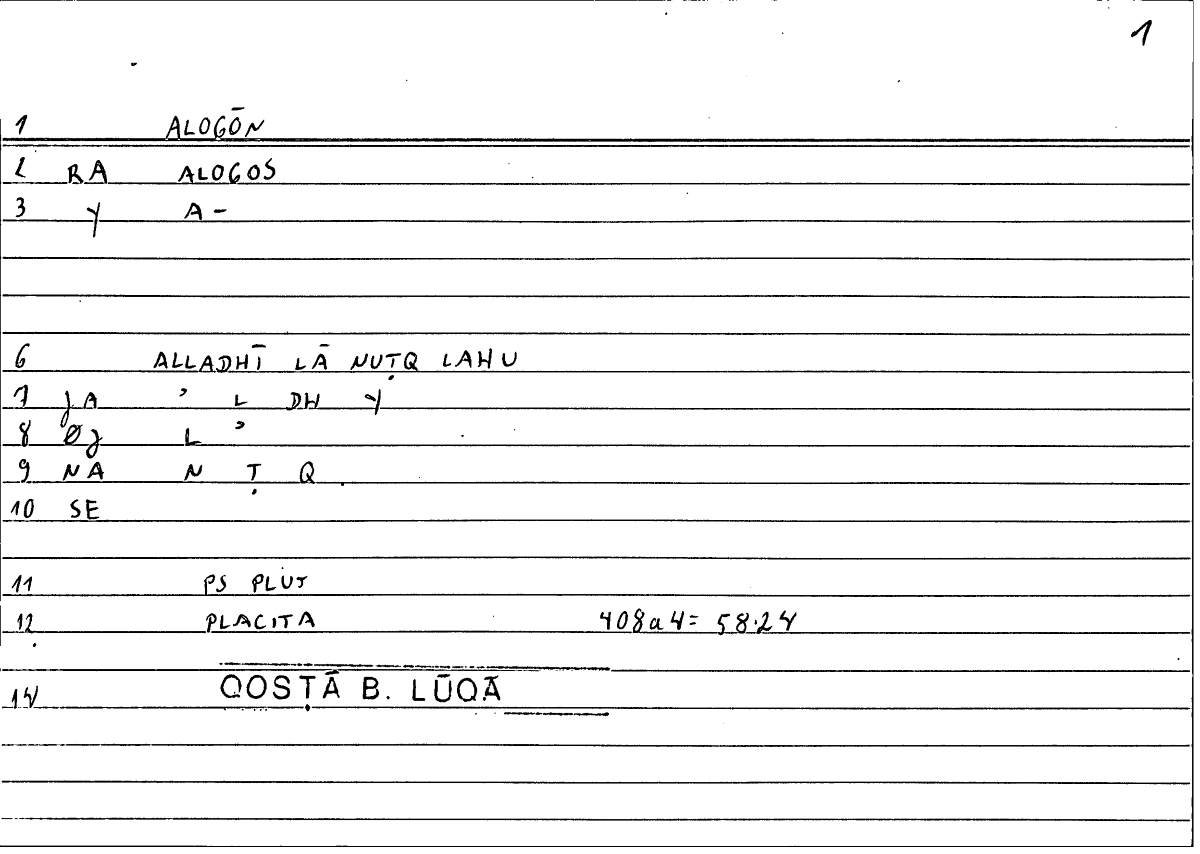 1
1 ALOGŌN
2 RA ALOGOS
3 Y A-
6 ALLADHĪ LĀ NUṬQ LAHU
7 JA ʾ L DH Y
8 ØJ L ʾ
9 NA N Ṭ Q
10 SE
11 PS PLUT
12 PLACITA 408a4= 58.24
14 QOSṬĀ B. LŪQĀ